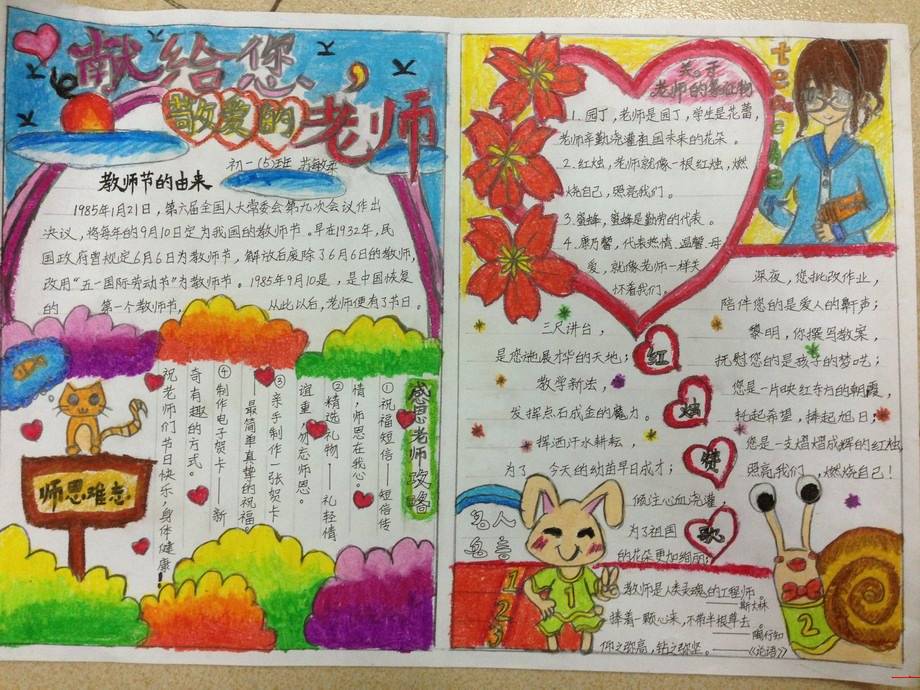 献给您、
敬爱的老师
初一(5)班
教师节的由来
1985年1月21日，第六届全国人大常委会第九次会议作出
决议，将每年的9月10日定为我国的教师节。早在1932年，民
国政府曾规定6月6日为教师节，解放后废除了6月6日的教师，
改用“五一国际劳动节”为教师节。1985年9月10是，是中国恢复
的 第一个教师节， 从此以后，老师便有了节日。
感恩老师攻略
①祝福短信——短信传
情，师恩在我心。
②精选礼物——礼轻情
谊重，勿忘师恩。
③亲手制作一张贺卡
——最简单真挚的祝福
④制作电子贺卡——新
奇有趣的方式。
祝老师们节日快乐、身体健康！
师恩难忘
关。于
老师的象征物
1. 园丁，老师是园丁，学生是花蕾，
老师辛勤浇灌祖国未来的花朵。
2. 红烛，老师就像一根红烛，燃
烧自己，照亮我们。
3. 蜜蜂，蜜蜂是勤劳的代表。
4. 康乃馨，代表热情、温馨、母
爱，就像老师一样关
怀着我们。
teache
红烛赞歌
三尺讲台，
是您施展才华的天地；
教学新法，
发挥点石成金的魔力。
挥洒汗水耕耘，
为了 今天的幼苗早日成才；
倾注心血浇灌，
为了祖国
的花朵更加绚丽；
深夜，您批改作业，
陪伴您的是爱人的鼾声；
黎明，你撰写教案，
抚慰您的是孩子的梦呓；
您是一片映红东方的朝霞，
托起希望，捧起旭日；
您是一支熠熠成辉的红烛，
照亮我们，燃烧自己！
名人
名言
1
2
3
教师是人类灵魂的工程师。
——斯大林
捧着一颗心来，不带半根草去。
——陶行知
仰之弥高，钻之弥坚。——《论语》
1
2